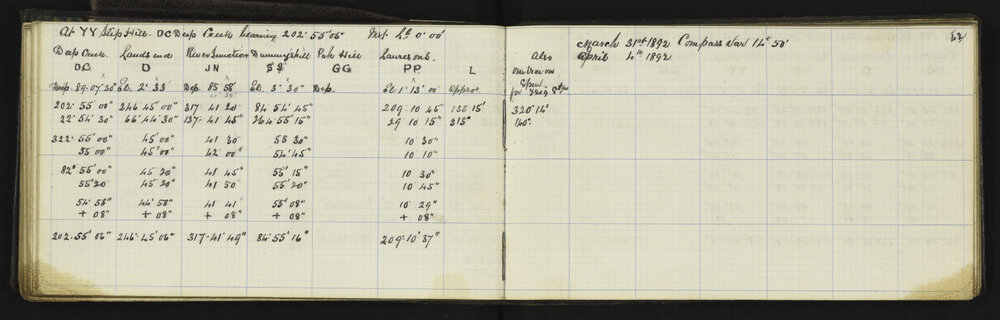 At YY Slip Hill. DC Deep Creek bearing 202° 55' 06" Inst. Ht 0' 00'
Deep Creek. Lands end River Junction Dummy's Hill Pah Hill
DC D JN SS GG PP L
Dep. 89.07'30" El. 2° 33' Dep. 85 58' El. 3° 30" Dep. El 1° 13' 00 approx.
202° 55' 00" 246 45' 00" 317. 41 20" 84 54' 45" 209 10 45 135 15'
22° 54' 30" 66° 44' 30" 137. 41 45" 264. 55' 15" 29 10 15" 315°
322° 55' 00" 45' 00" 41 30" 55 30" 10 30"
55 00" 45' 00" 42 00" 54' 45" 10 10"
82° 55' 00" 45 20" 41 45" 55' 15" 10 30"
55' 20" 45' 20" 41 50" 55' 20" 10 45"
54' 58" 44' 58" 41' 41" 55' 08" 10 29"
+ 08" + 08" + 08" + 08" + 08"
202. 55' 06" 246. 45' 06" 317. 41' 49" 84° 55' 16" 209° 10' 37"
42
March 31st 1892 Compass Var 14° 50'
April 4th 1892
Also
on
Spur.
for Trig Stn
320° 14'
140°